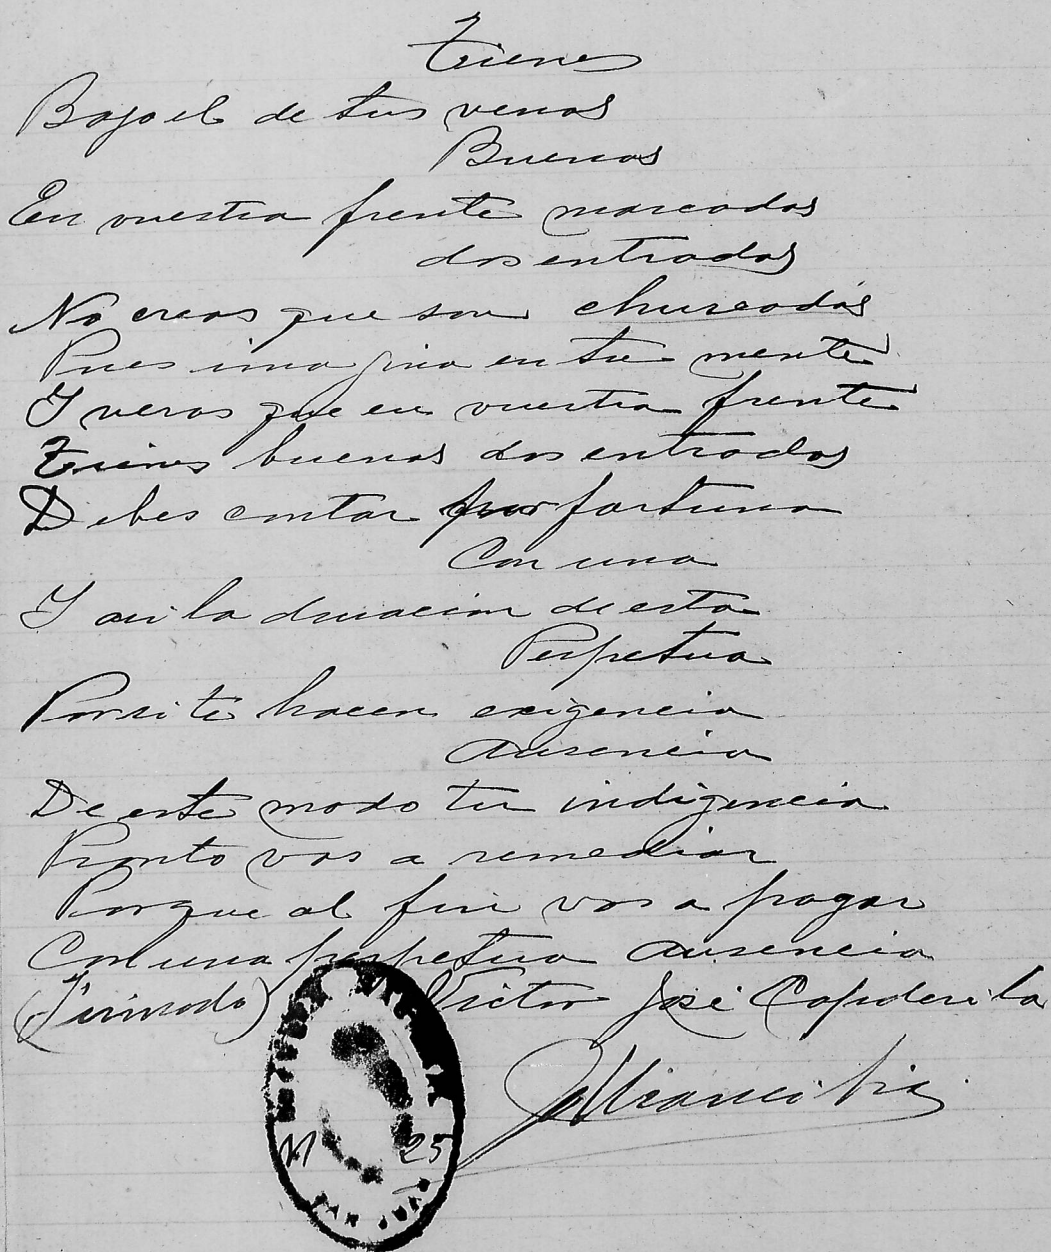 Tienes
Bajo el de tus venas
Buenas
En vuestra frente marcadas
dos entradas
No creas que son chuscadas
Pues imagina en tu mente
Y veras que en vuestra frente
Tienes buenas dos entradas
Debes contar por fortuna
Con una
Y asi la duracion de esta
Perpetua
Por si te hacen exigencia
Ausencia
De este modo tu indigencia
Pronto vas a remediar
Porque al fin vas a pagar
Con una perpetua ausencia
(Firmado) Victor José Capdevila
25